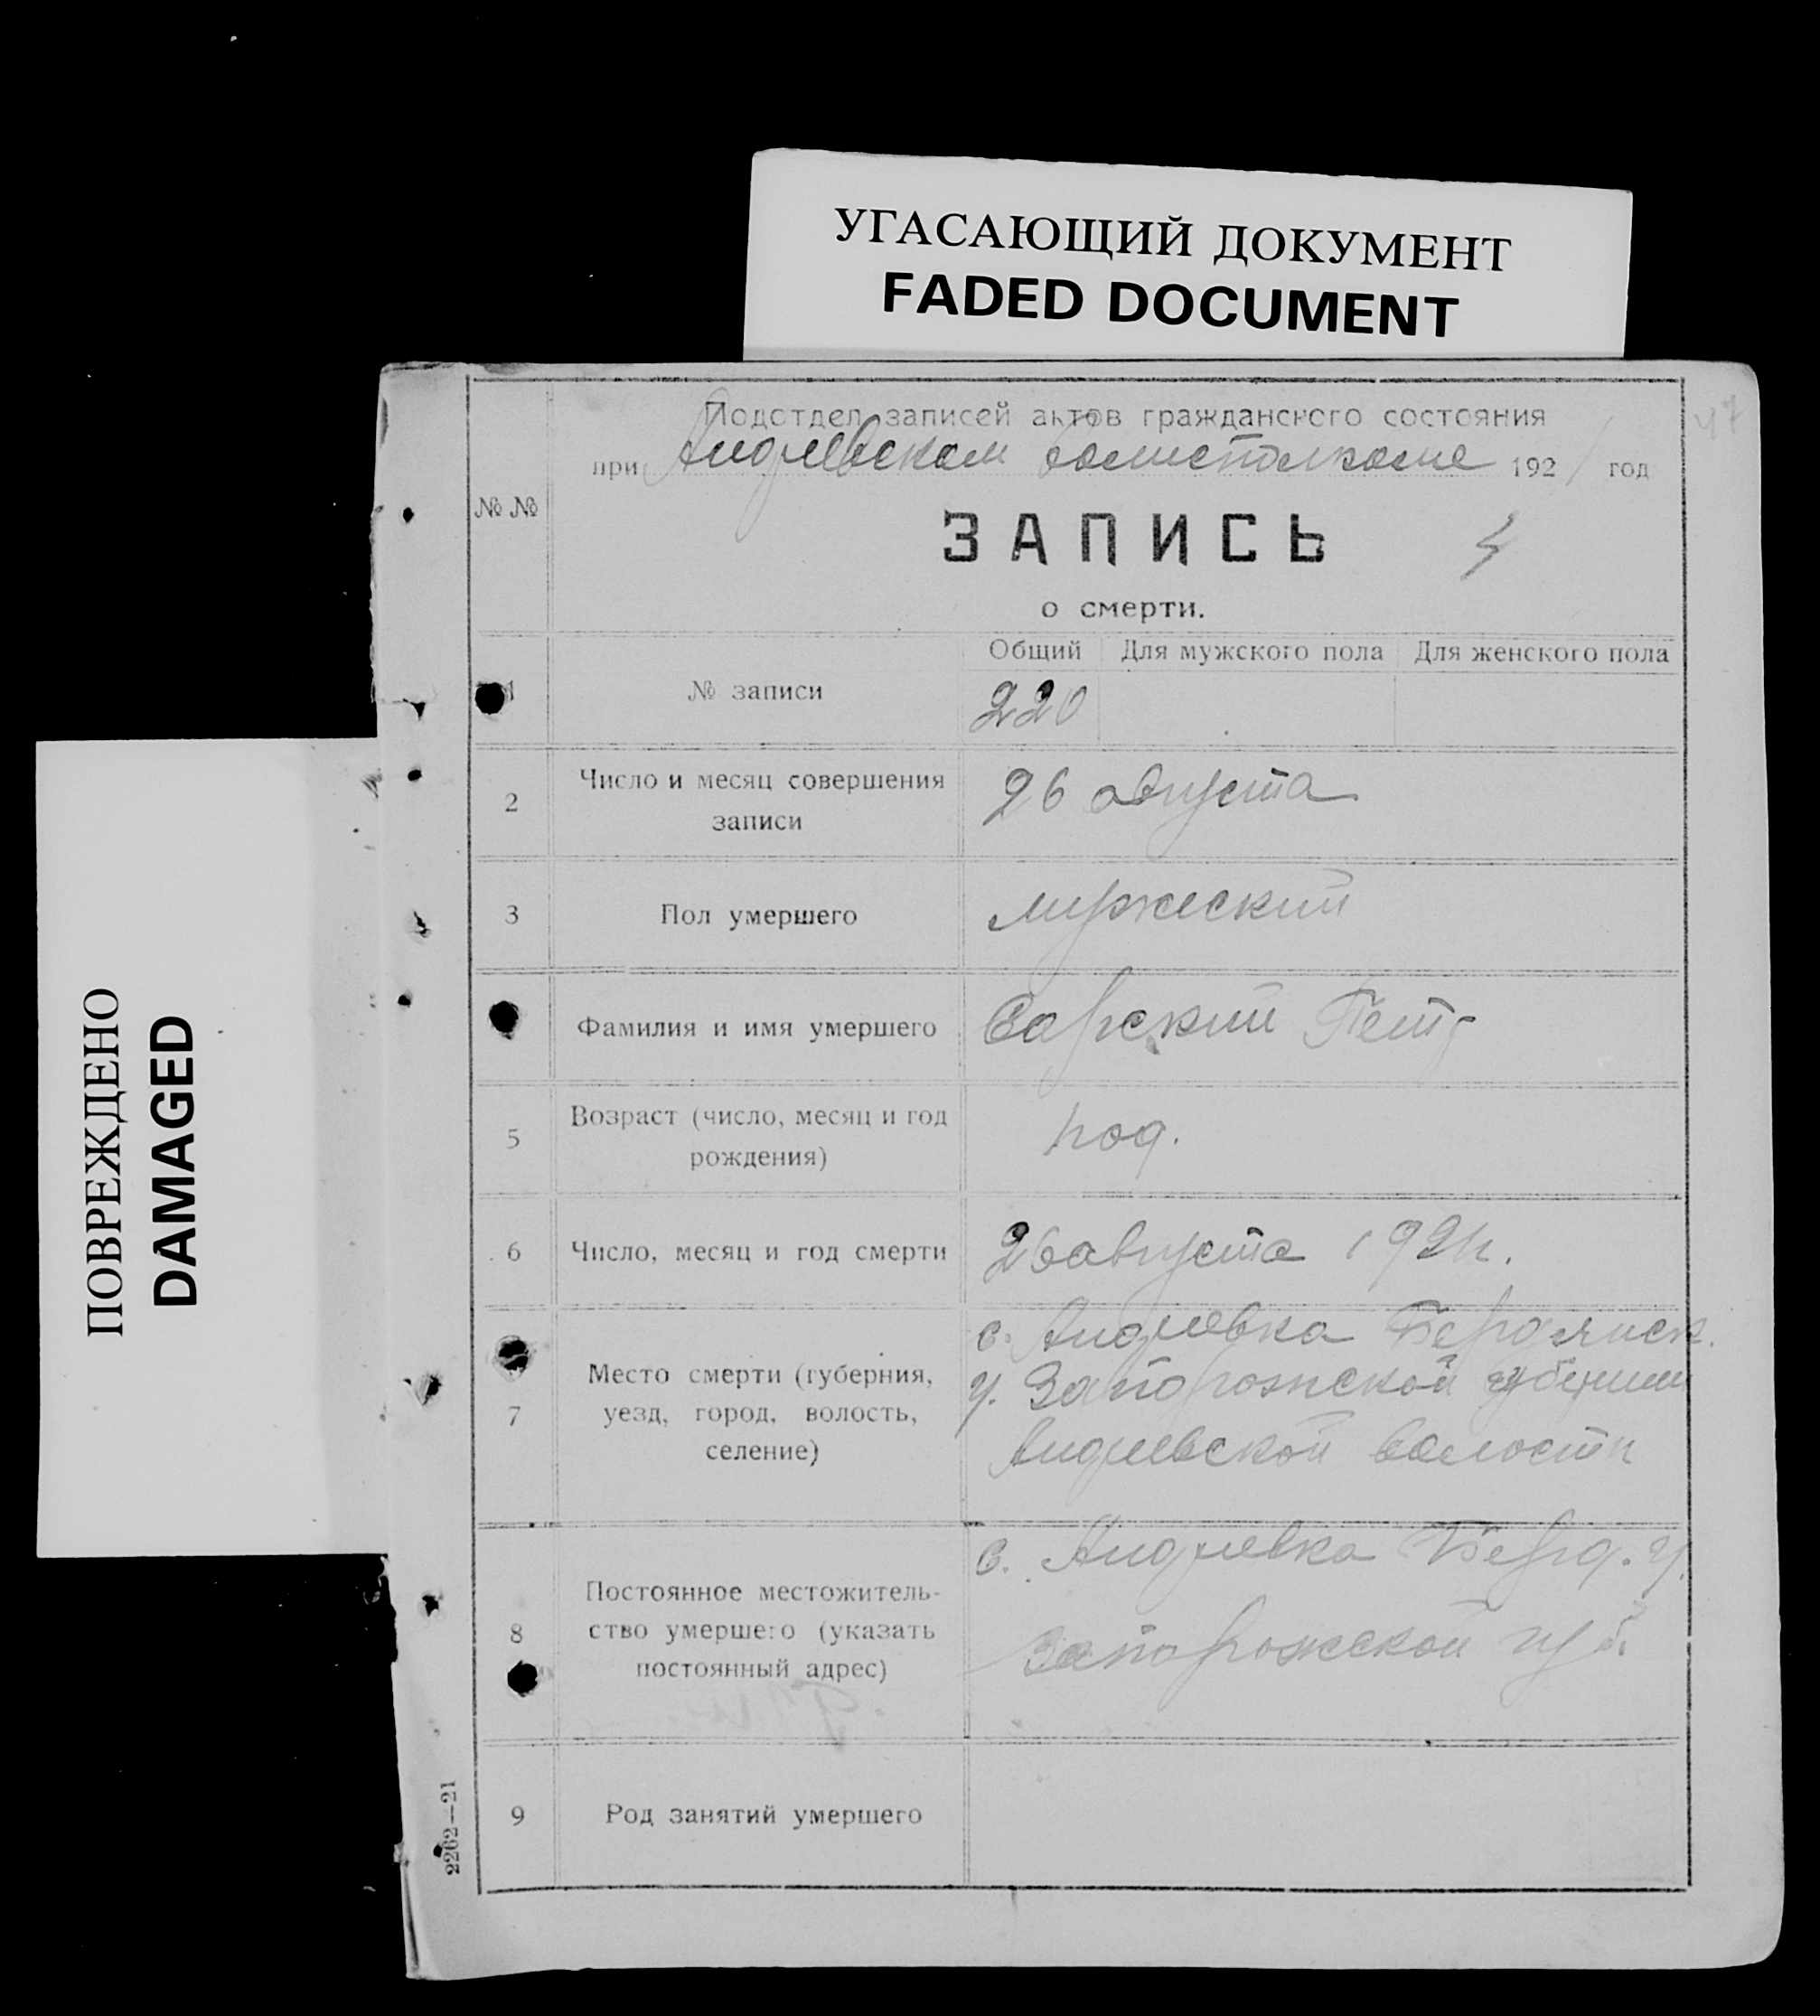 УГАСАЮЩИЙ ДОКУМЕНТ
FADED DOCUMENT
ПОВРЕЖДЕНО
DAMAGED
47
Подотдел записей актов гражданского состояния
при Андреевском волисполкоме 1921 год
№ №
ЗАПИСЬ
о смерти.
Общий Для мужского пола Для женского пола
1 № записи 220
2 Число и месяц совершения
записи
26 августа
3 Пол умершего мужеский
Фамилия и имя умершего Сарский Петр
5 Возраст (число, месяц и год
рождения)
год.
6 Число, месяц и год смерти 26 августа 1921 г.
7 Место смерти (губерния,
уезд, город, волость,
селение)
с. Андреевка Бердянск.
у. Запорожской губернии
Андреевской волости
8 Постоянное местожитель-
ство умершего (указать
постоянный адрес)
с. Андреевка Берд. у.
Запорожской губ.
9 Род занятий умершего
2262—21